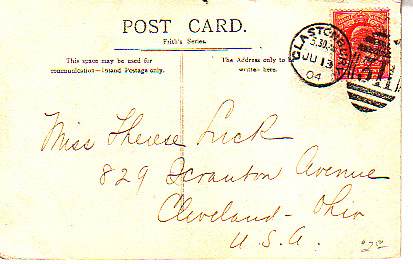 POST CARD.
Frith's Series.
This space may be used for
communication—Inland Postage only.
The Address only to be
written here.
GLASTONBURY
JU 13
04
Miss Therese Luck
829 Scranton Avenue
Cleveland - Ohio
U.S.A.